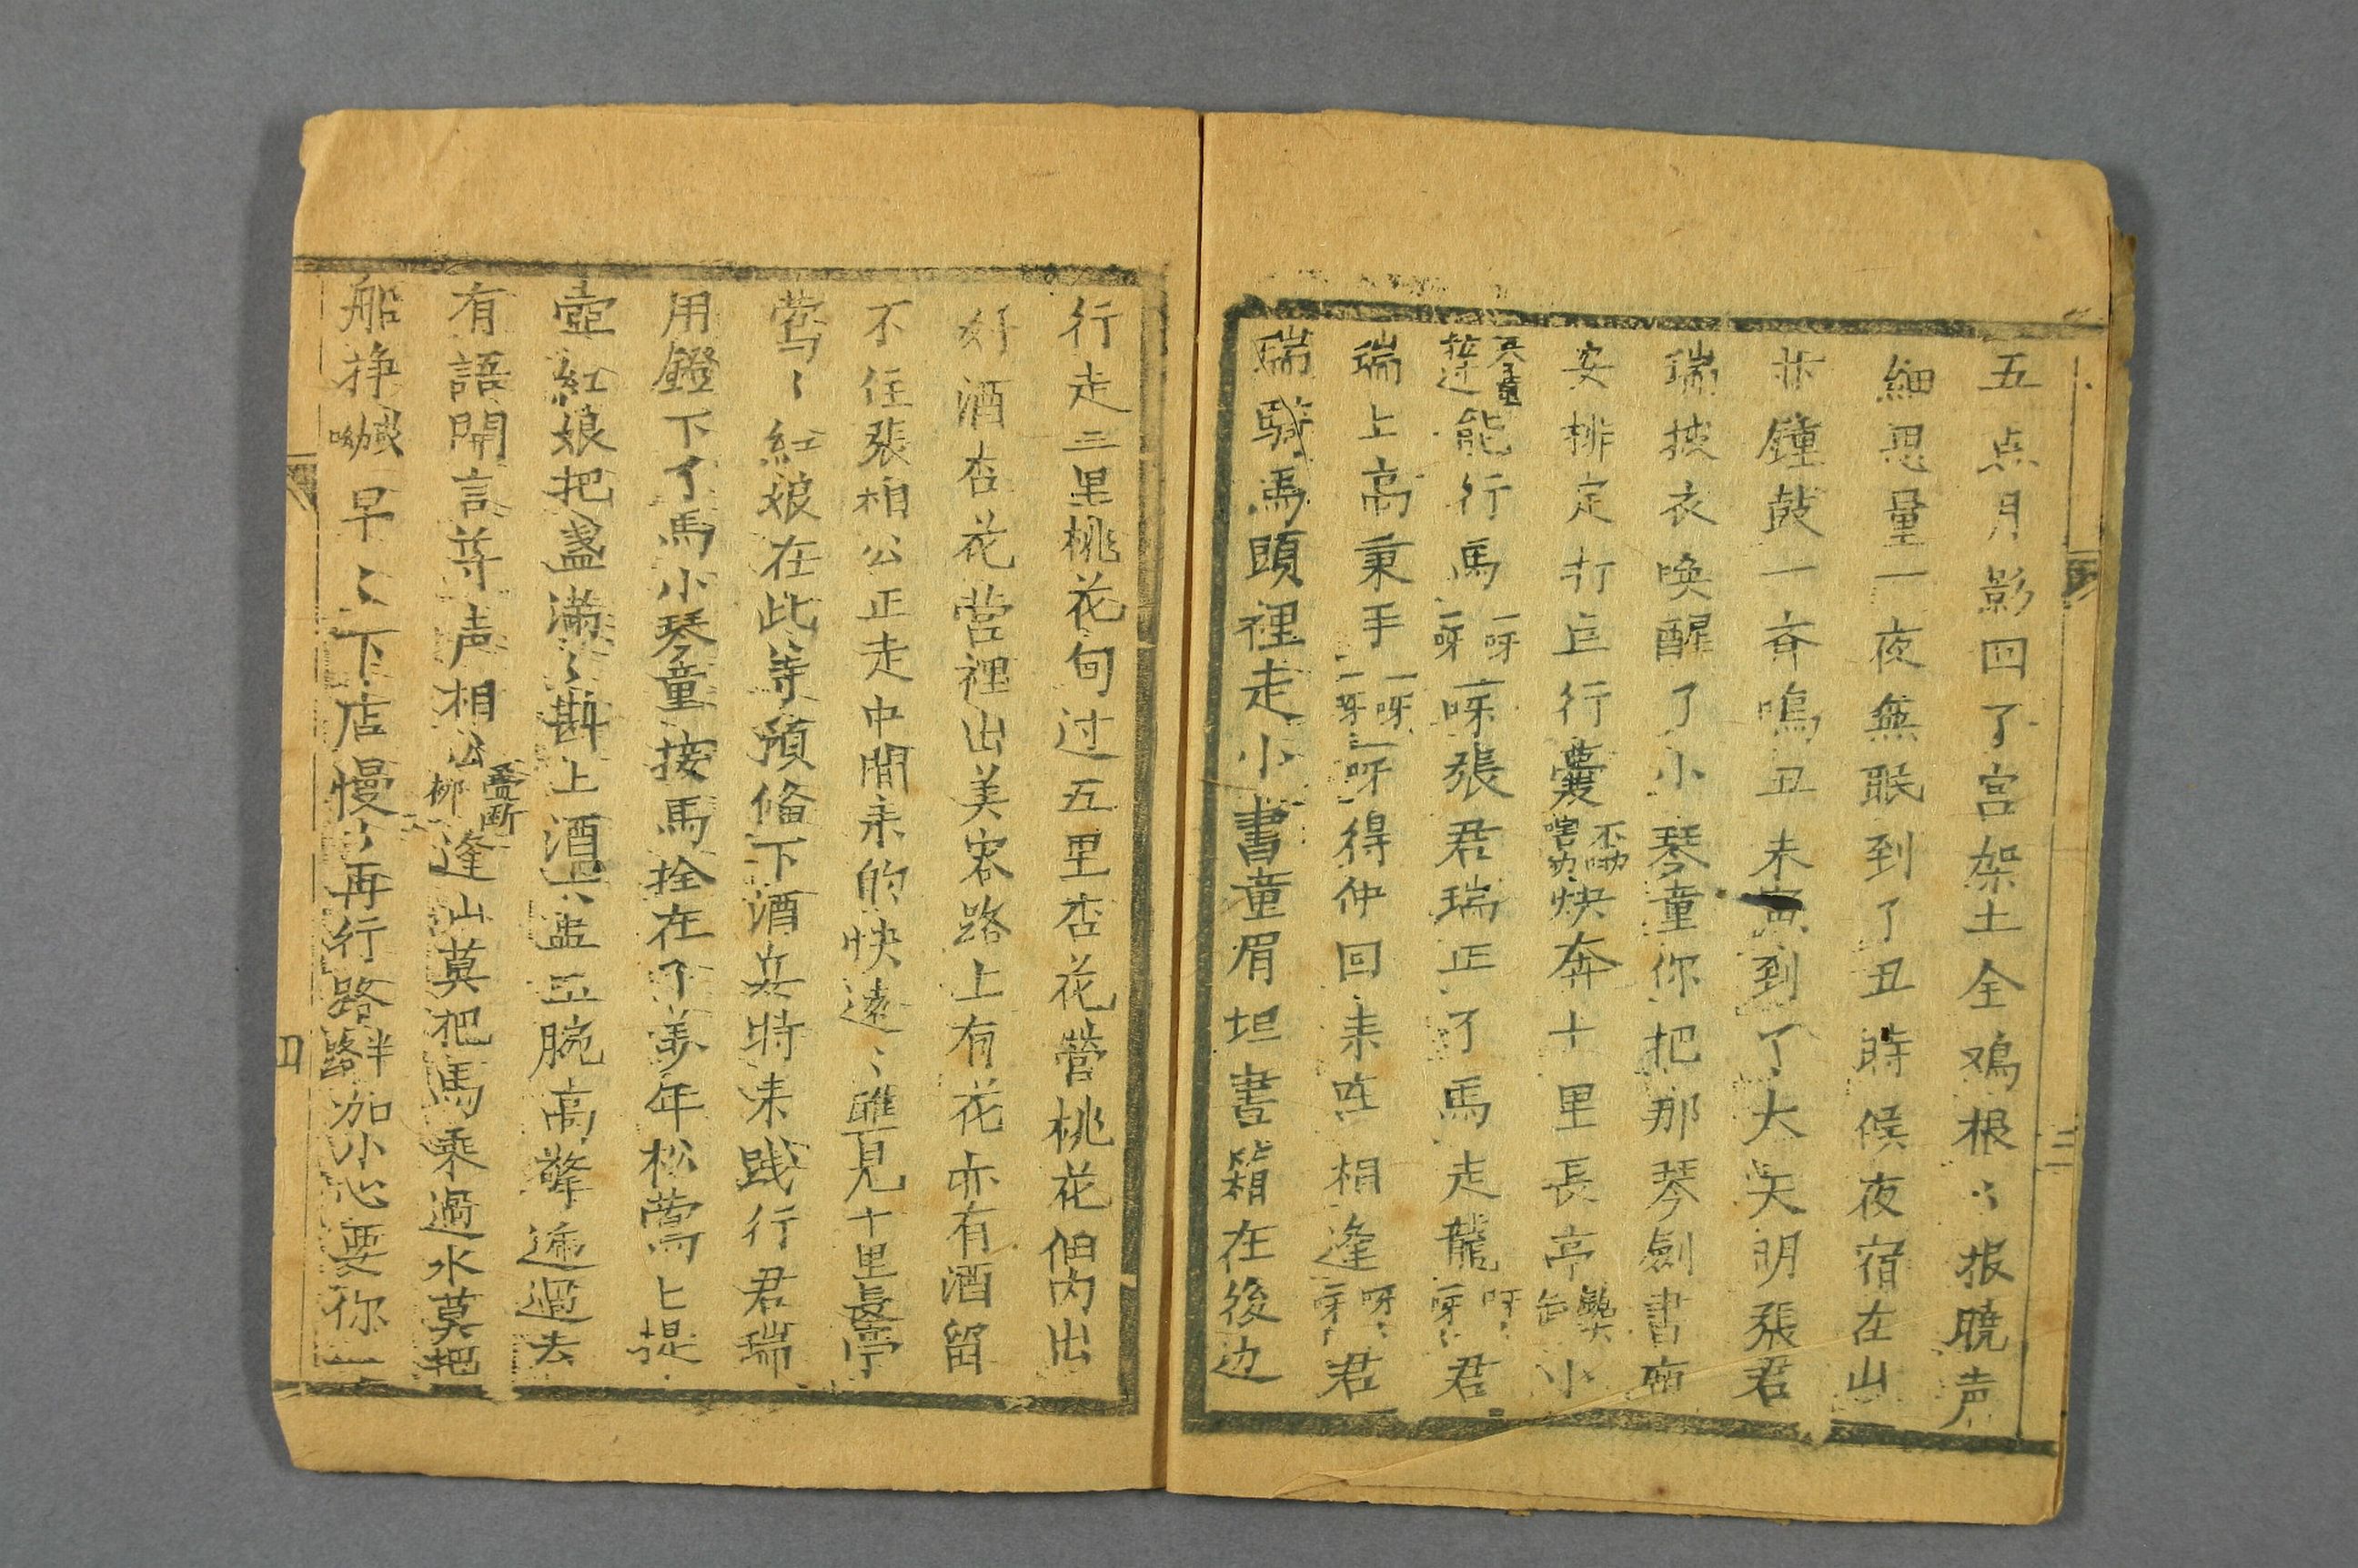 五点月影回了宫架土全鳮根〻报曉声
細思量一夜無眠到了丑時候夜宿在山
鐘鼓一斉鳴丑未寅到了大天明張君
瑞披衣喚醒了小琴童你把那琴劍書
安排定打行囊快奔十里長亭小
琴童拉过能行馬一呀一呀一呀張君瑞正了馬走龍呀〻一呀〻君
瑞上高秉手一呀一呀一呀得仲回来在相逢呀〻一呀〻君
瑞騎馬頭裡走小書童眉坦書箱在後边
三
行走三里桃花旬过五里杏花营桃花佃内出
好酒杏花营裡出美客路上有花亦有酒留
不住張相公正走中間来的快遠〻瞧見十里長亭
莺〻紅娘在此等預俻下酒兵時来践行君瑞
用鐙下了馬小琴童按馬拴在了美年松鶯上提
壶紅娘把盏满〻斟上酒六盅五腕高擎遞過去
有語開言尊声相公逢山莫把馬乘過水莫把
船挣早〻下店慢〻再行路半路加小心要你一
四